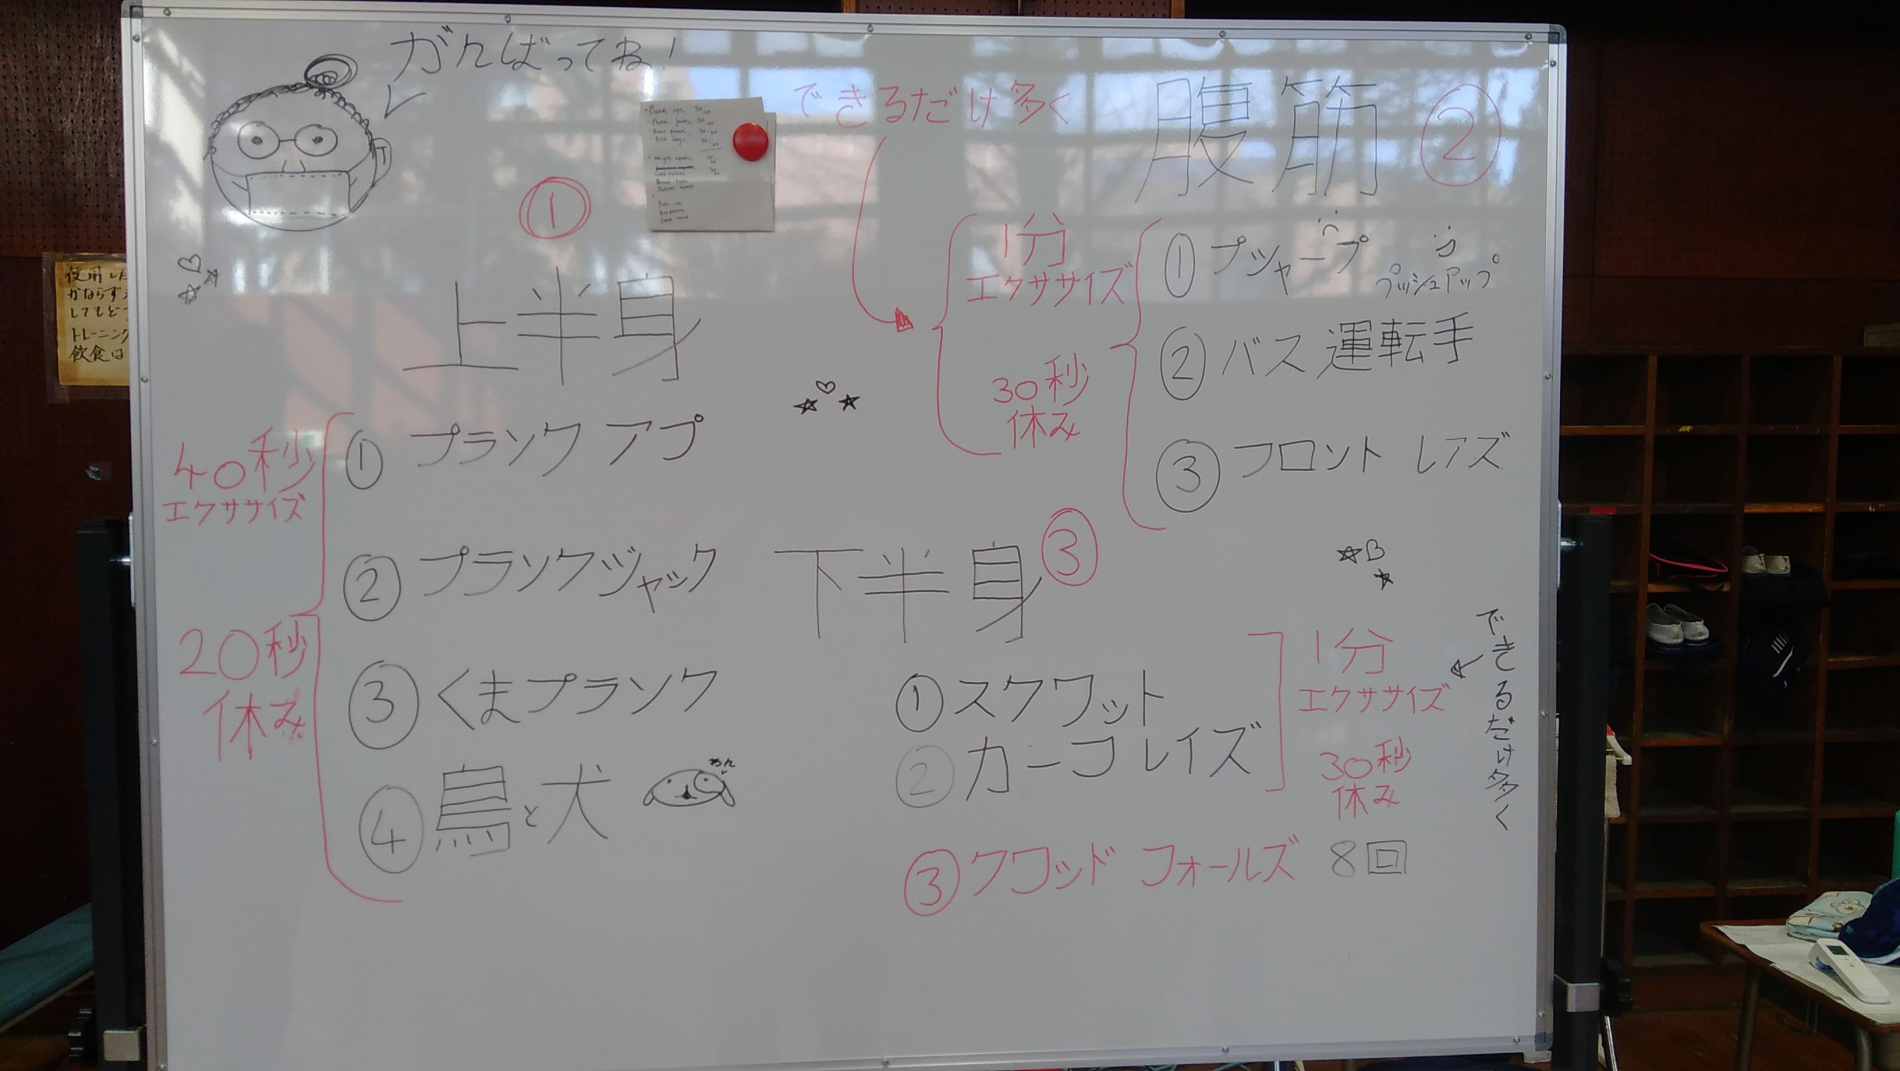 がんばってね！
①
上半身
40秒
エクササイズ
20秒
休み
①プランクアプ
②プランクジャック
③くまプランク
④鳥と犬
わん
できるだけ多く
腹筋②
1分
エクササイズ
30秒
休み
①プシャープ
プッシュアップ
②バス運転手
③フロント レアズ
下半身③
①スクワット
②カーフレイズ
1分
エクササイズ
30秒
休み
できるだけ多く
③クワッド フォールズ 8回
使用した
かならず
トレーニング
飲食は